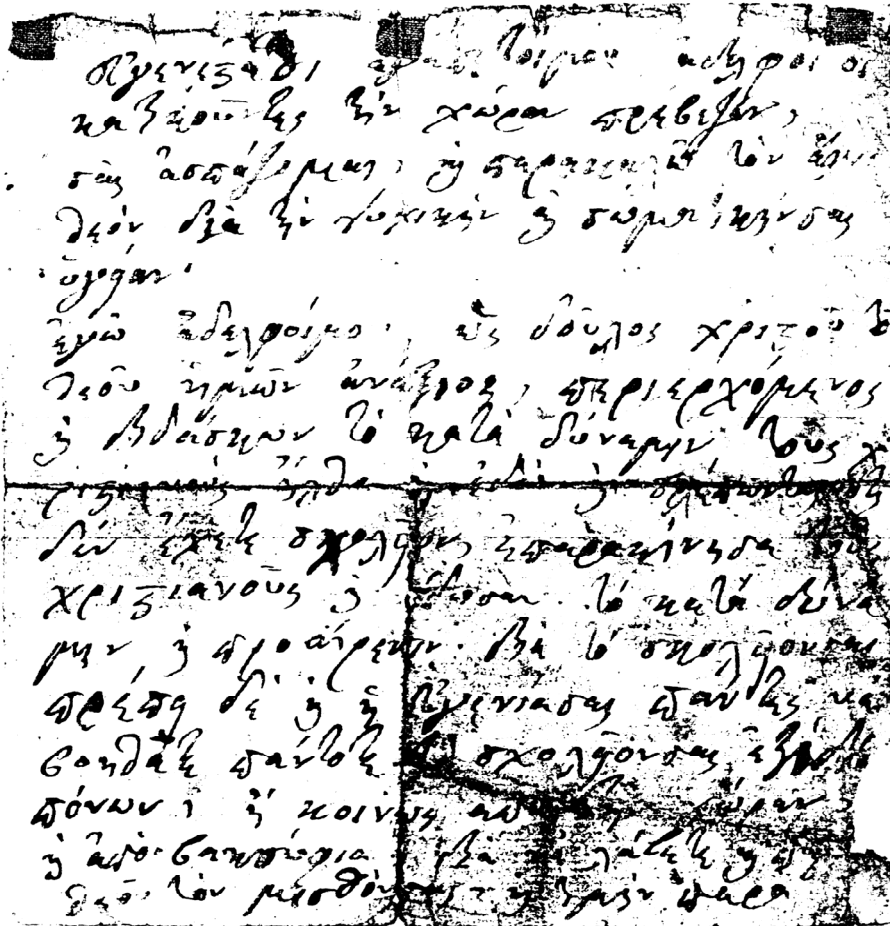 εὐγενέστατοι ἀγαπητοίμου ἀδελφοὶ οἱ
κατοικοῦντες τὴν χώραν πρέβεζαν,
σᾶς ἀσπάζομαι, καὶ παρακαλῶ τὸν ἅγιον
θεὸν διὰ τὴν ψυχικὴν καὶ σωματικήν σας
ὑγείαν·
ἐγὼ ἀδελφοίμου, ὡς δοῦλος χριστοῦ τοῦ
θεοῦ ἡμῶν ἀνάξιος, περιερχόμενος
καὶ διδάσκων τὸ κατὰ δύναμιν τοὺς χ
ριστιανούς ἦλθα καὶ ἐδῶ καὶ βλέπωντας ὅτι
δὲν ἔχετε σχολεῖον, ἐπαρακίνησα τοὺς
χριστιανοὺς καὶ ἔδωσαν τὸ κατὰ δύνα
μιν καὶ προαίρεσιν διὰ τὸ σχολεῖον σας
πρέπει δὲ καὶ ἡ εὐγενίασας πάντες νὰ
βοηθᾶτε πάντοτε τὸ σχολεῖον σας ἐξ
πόνων, ἢ κοινῶς ἀπὸ τὴν χώραν
ἢ ἀπὸ βακούφια διὰ νὰ λάβετε καὶ
θεοῦ τὸν μισθόν σας καὶ τιμὴν παρὰ